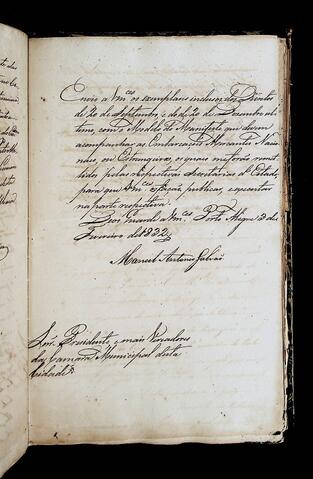 Envio a Vm.ces os exemplares inclusos dos Decretos
de 20 de Septembro, e de 20 de Dezembro ul-
timo, com o Modelo do Manifesto que devem
acompanhar as Embarcações Mercantes Nacio-
naes ou Estrangeiras, os quaes me forão remet-
tidos pelas respectivas Secretarias de Estado,
para que Vm.ces os fação publicar, e executar
na parte respectiva.
Deos Guarde a Vm.ces Porto Alegre 3 de
Fevereiro de 1832
Manoel Antonio Galvão
Snr. Presidente, e mais Vereadores
da Camara Municipal desta
Cidade